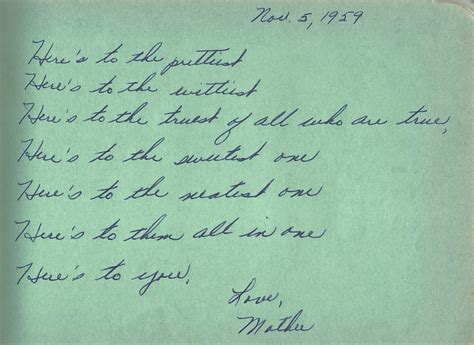 Nov. 5, 1959
Here's to the prettiest
Here's to the wittiest
Here's to the truest of all who are true,
Here's to the sweetest one
Here's to the neatest one
Here's to them all in one
Here's to you.
Love,
Mother